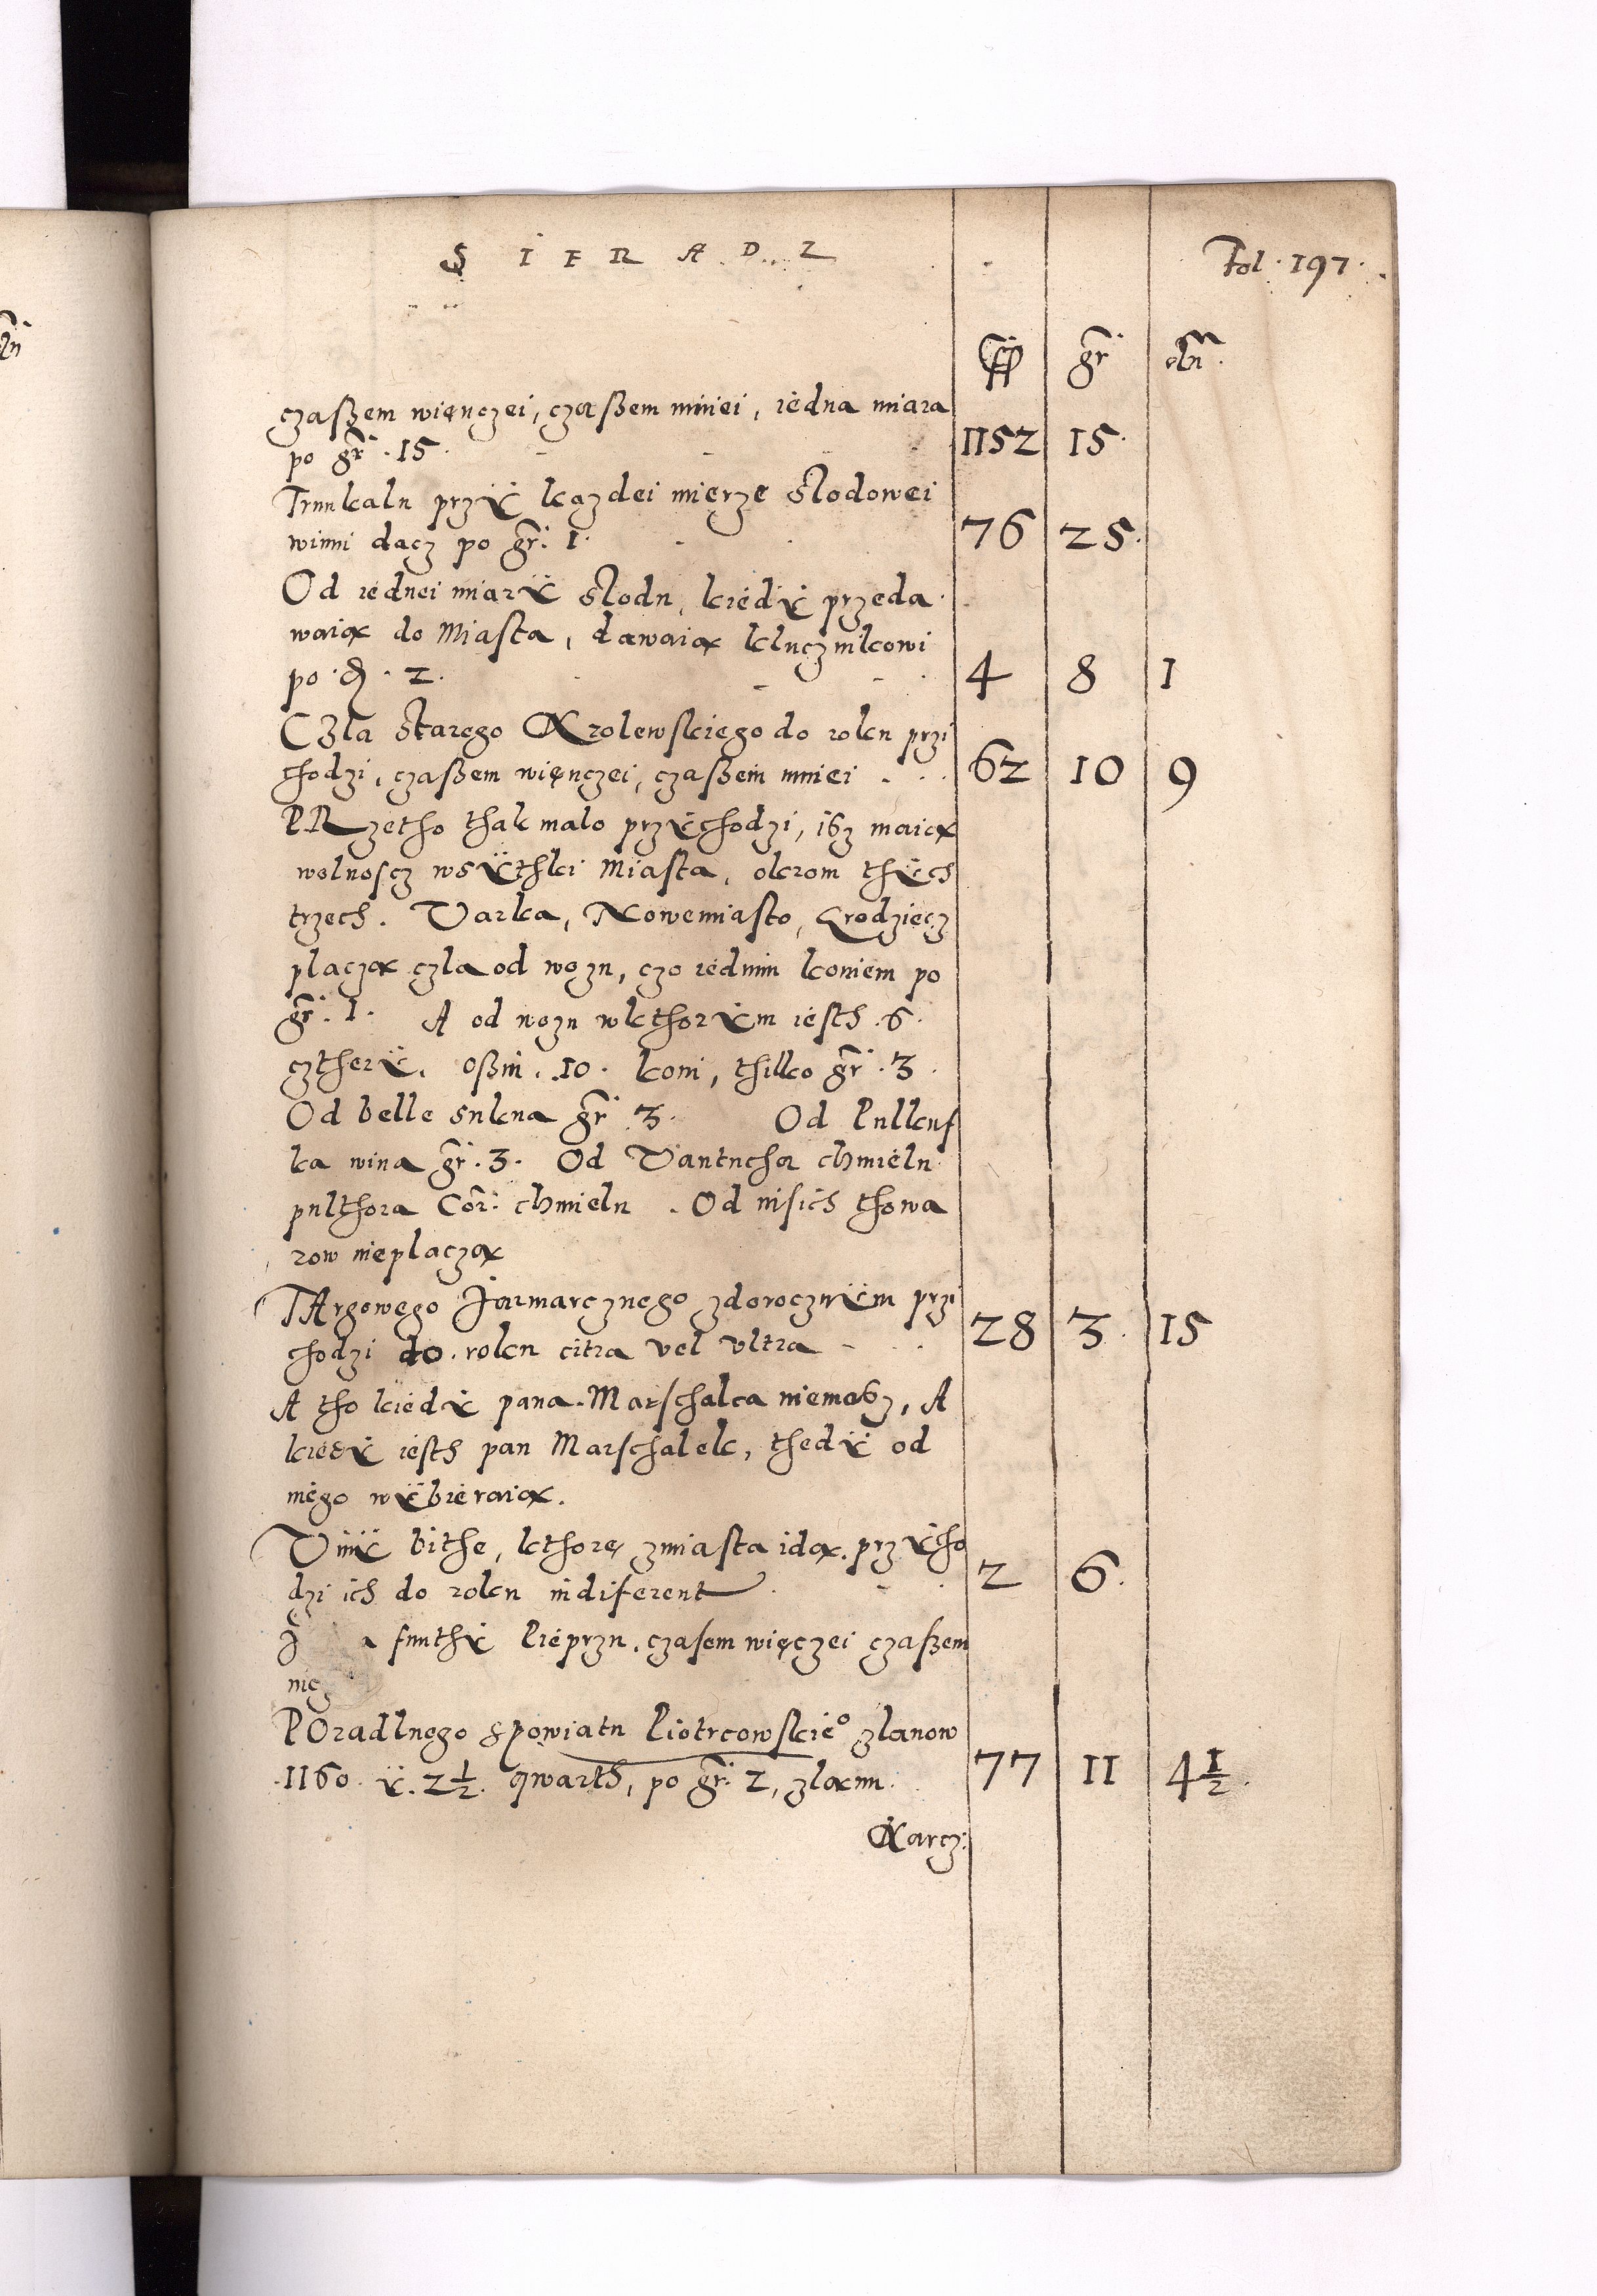 S I E R A D Z
Fol. 197.
ff gr obu.
czaßem więnczei, czaßem mniei, iedna miara
po gr. 15. 1152 15.
Trunkalu przÿ kazdei mierze slodowei
winni dacz po gr. 1. 76 25.
Od iednei miarÿ slodu, kiedÿ przeda
waią do Miasta, dawaią kluczmkowi
po . 2. 4 8 1
CZla starego Krolewskiego do roku przi
chodzi, czaßem więnczei, czaßem mniei 62 10 9
PRzetho thak malo przÿchodzi, ißz maią
wolnoscz wsÿthki Miasta, okrom thÿch
trzech. Varka, Nowemiasto, Grodziecz
placzą czla od wozu, czo iednim koniem po
gr. 1. A od wozu wkthorÿm iesth .6.
cztherÿ, oßm, .10. koni, thilko gr. 3.
Od belle sukna gr 3. Od Pulkuf
ka wina gr. 3. Od Vantucha chmielu
pulthora Cor: chmielu. Od inßich thowa
row nieplaczą
TArgowego Jarmarcznego zdorocznÿm przi
chodzi do roku citra vel ultra 28 3. 15
A tho kiedÿ pana Marschalca niemaßz, A
kiedÿ iesth pan Marschalek, thedÿ od
niego wÿbieraią.
Vinÿ bithe, kthorę zmiasta idą. przÿcho
dzi ich do roku indiferent 2 6.
funthÿ Pieprzu, czasem więczei czaßem

POradlnego spowiatu Piotrcowskie° zlanow
.1160. ÿ. 2½. qwarth, po gr. 2, zlanu. 77 11 4½.
Karcz: